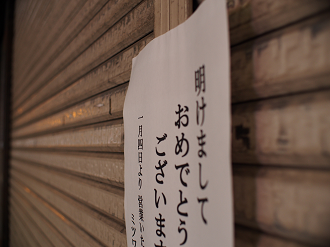 明けまして
おめでとう
ございます
一月四日より 営業いた
ミツワ